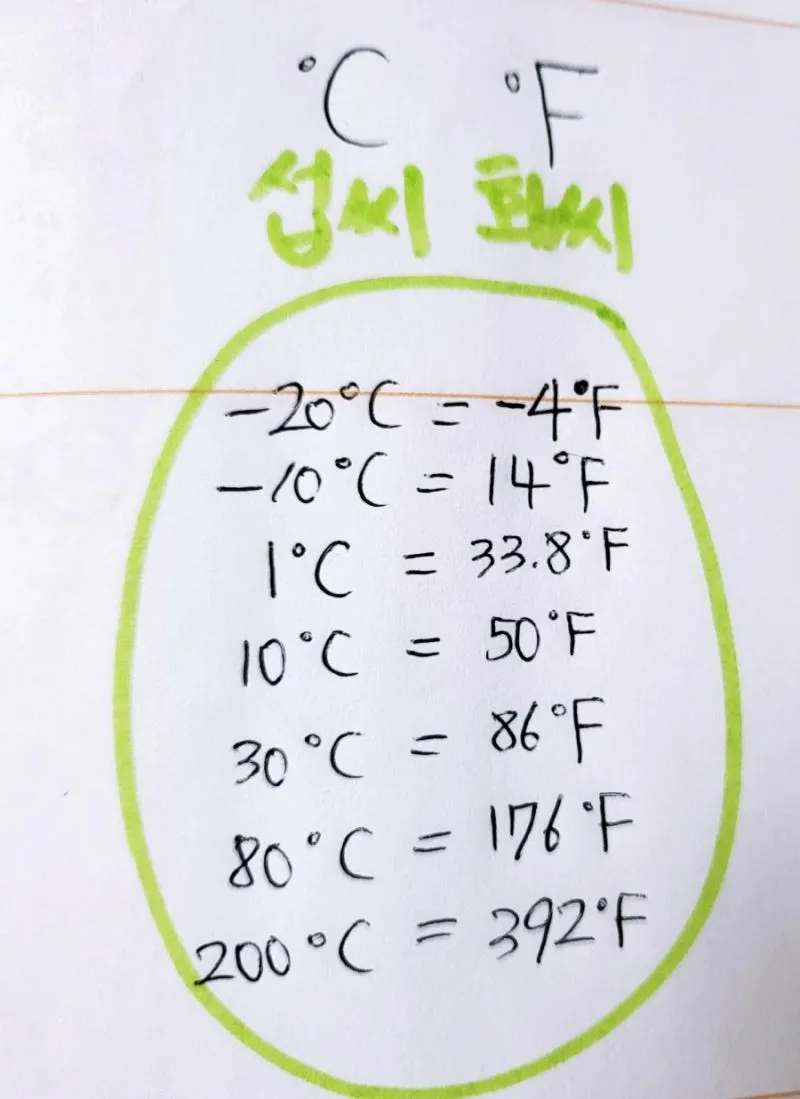 °C °F
섭씨 화씨
-20°C = -4°F
-10°C = 14°F
1°C = 33.8°F
10°C = 50°F
30°C = 86°F
80°C = 176°F
200°C = 392°F